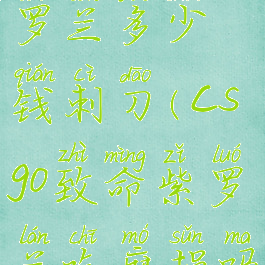 罗兰多少
qián cì dāo
钱刺刀(CS
zhì mìng zǐ luó
90致命紫罗
lán chī mó sǔn ma
兰吃磨损吗